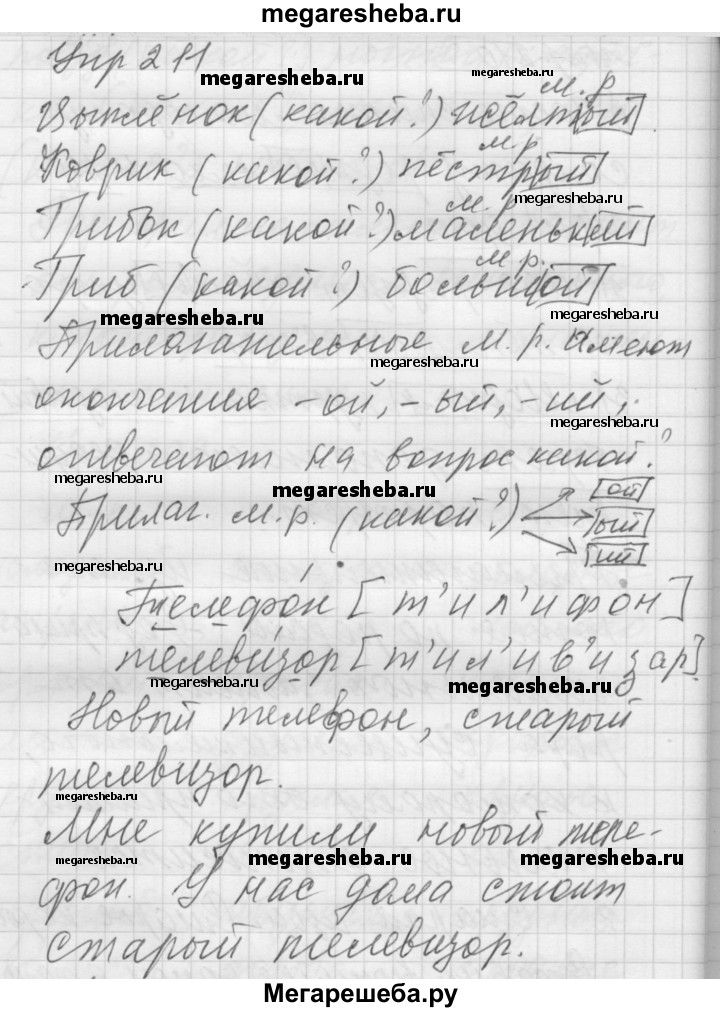 megaresheba.ru
Упр 211
megaresheba.ru
megaresheba.ru
м. р
Цыплёнок (какой?) жёлтый
м. р
Коврик (какой?) пёстрый
megaresheba.ru
м. р
Грибок (какой?) маленький
м. р.
Гриб (какой?) большой
megaresheba.ru
Прилагательные м. р. имеют
megaresheba.ru
окончания -ой, -ый, -ий,
megaresheba.ru
отвечают на вопрос какой?
megaresheba.ru
megaresheba.ru
ой
Прилаг. м. р. (какой?) ый
ий
megaresheba.ru
Телефон [т'ил'ифон]
телевизор [т'ил'ив'изар]
megaresheba.ru
megaresheba.ru
Новый телефон, старый
телевизор.
megaresheba.ru
Мне купили новый теле-
megaresheba.ru
megaresheba.ru
megaresheba.ru
фон. У нас дома стоит
старый телевизор.
Мегарешеба.ру